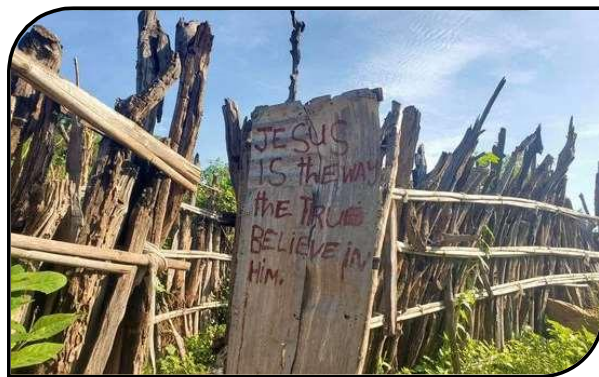 JESUS
IS the WAY
the TRUE
BELIEVE iN
HiM.